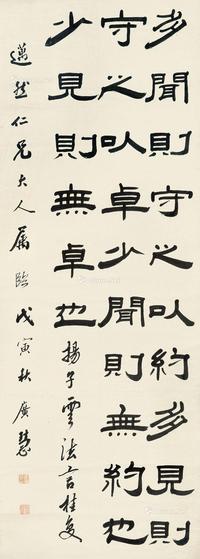 多聞則守之㠯約多見則
守之㠯卓少聞則無約也
少見則無卓也 揚子雲法言桂复
仁兄大人屬臨 戊寅秋 廣慧